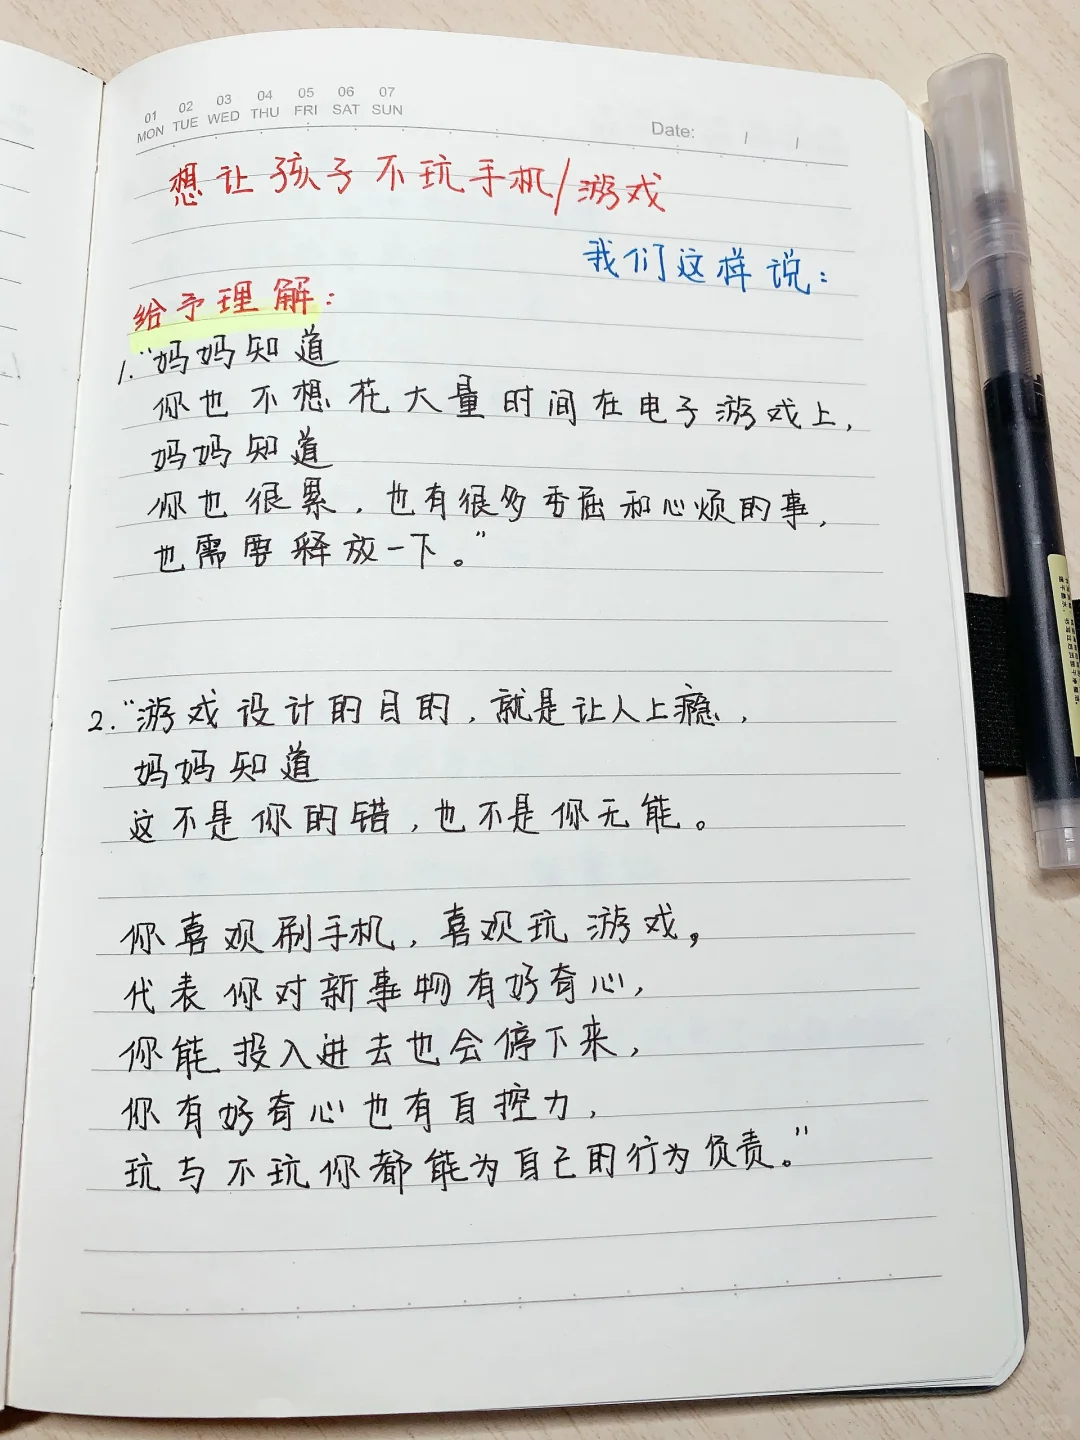 01 02 03 04 05 06 07
MON TUE WED THU FRI SAT SUN
Date: / /
想让孩子不玩手机/游戏
我们这样说：
给予理解：
1.“妈妈知道
你也不想花大量时间在电子游戏上，
妈妈知道
你也很累，也有很多委屈和心烦的事，
也需要释放一下。”
2.“游戏设计的目的，就是让人上瘾，
妈妈知道
这不是你的错，也不是你无能。
你喜欢刷手机，喜欢玩游戏，
代表你对新事物有好奇心，
你能投入进去也会停下来，
你有好奇心也有自控力，
玩与不玩你都能为自己的行为负责。”